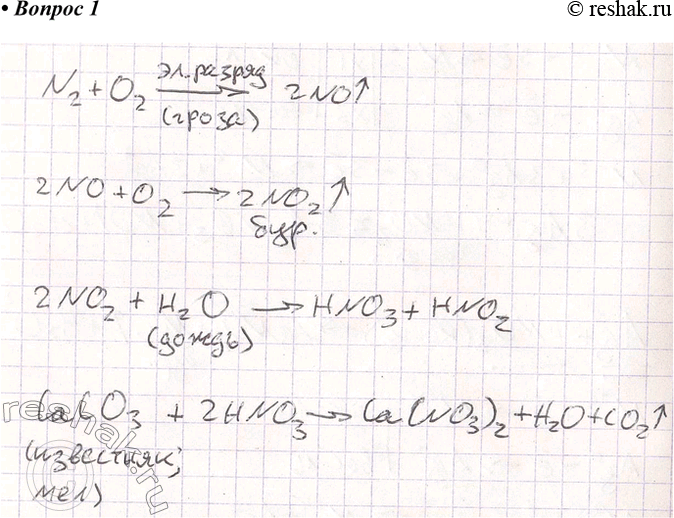 • Вопрос 1
© reshak.ru
N₂ + O₂ эл. разряд → (гроза) 2NO↑
2NO + O₂ → 2NO₂↑
бур.
2NO₂ + H₂O → HNO₃ + HNO₂
(дождь)
CaCO₃ + 2HNO₃ → Ca(NO₃)₂ + H₂O + CO₂↑
(известняк,
мел)
reshak.ru